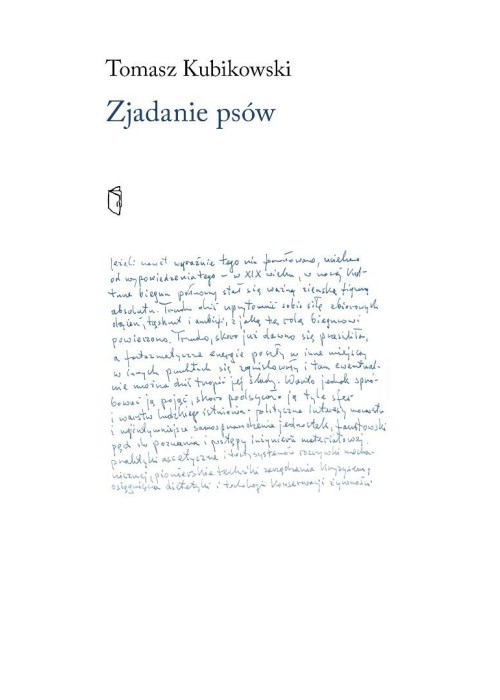 Tomasz Kubikowski
Zjadanie psów
Jeżeli nawet wyraźnie tego nie formułowano, nieledwie
od wypowiedzenia tego – w XIX wieku, w naszej kul-
turze biegun północny stał się ważną ziemską figurą
absolutu. Trudno dziś uprzytomnić sobie siłę zbiorowych
dążeń, tęsknot i ambicji, z jaką tę rolę biegunowi
powierzono. Trudno, skoro już dawno się przesiliła,
a fantazmatyczne energie poszły w inne miejsca,
w innych punktach się zogniskowały i tam ewentual-
nie można dziś tropić jej ślady. Warto jednak spró-
bować ją pojąć, skoro podsycało ją tyle sfer
i warstw ludzkiego istnienia: polityczne
i najintymniejsze samosprawdzenia jednostek, faustowski
pęd do poznania i postępy inżynierii materiałowej,
praktyki ascetyczne i tech systemów rozrywki
pionierskie techniki zarządzania kryzysem,
osiągnięcia dietetyki i technologii konserwacji żywności